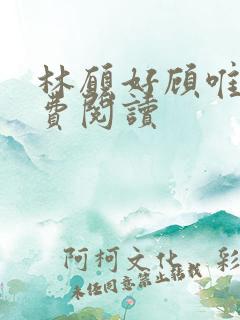 林願好顾唯
費閱讀
阿柯文化 彩
未经同意禁止转载